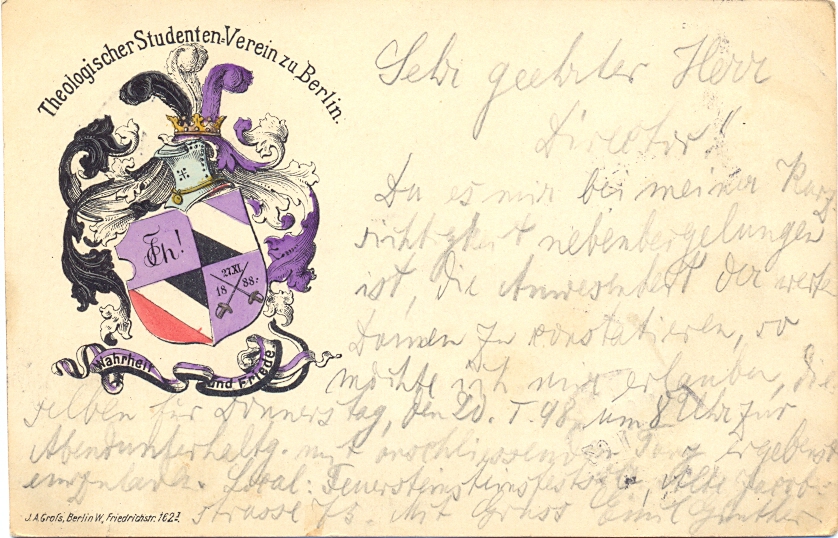 Theologischer Studenten-Verein zu Berlin.
Th!
27.XI.
18 88.
Wahrheit und Friede
Sehr geehrter Herr
Director!
Da es mir bei meiner Kurz
sichtigkeit
ist, die Anwesenheit der werten
Damen zu konstatieren, so
möchte ich mir erlauben, die
selben für Donnerstag, den 20. I. 98 um 8 Uhr zur
Abendunterhaltg. mit anschliessendem Tanz ergebenst
einzuladen. Local: Feuersteins Alte Jacob-
strasse 75. Mit Gruss Emil Günther
J.A.Groſs, Berlin W., Friedrichstr. 162I